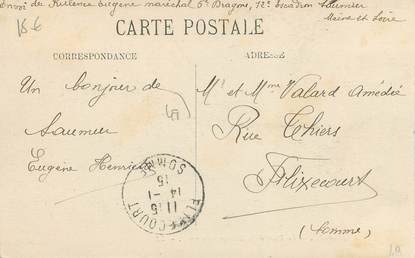 Envoi de Eugène maréchal 6e Dragons, 12e Escadron Saumur
Maine et Loire
18 €
CARTE POSTALE
CORRESPONDANCE
ADRESSE
Un bonjour de
Saumur
Eugène Henriette
Mr et Mme Valard Amédée
Rue Thiers
Flixecourt
(Somme)
FLIXECOURT
SOMME
11 15
14 -1
15